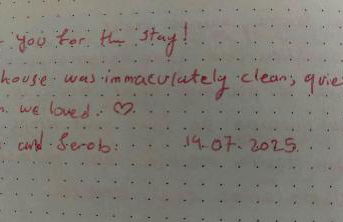 you for the stay!
house was immaculately clean, quie
we loved. ♡.
and Serob. 14.07.2025